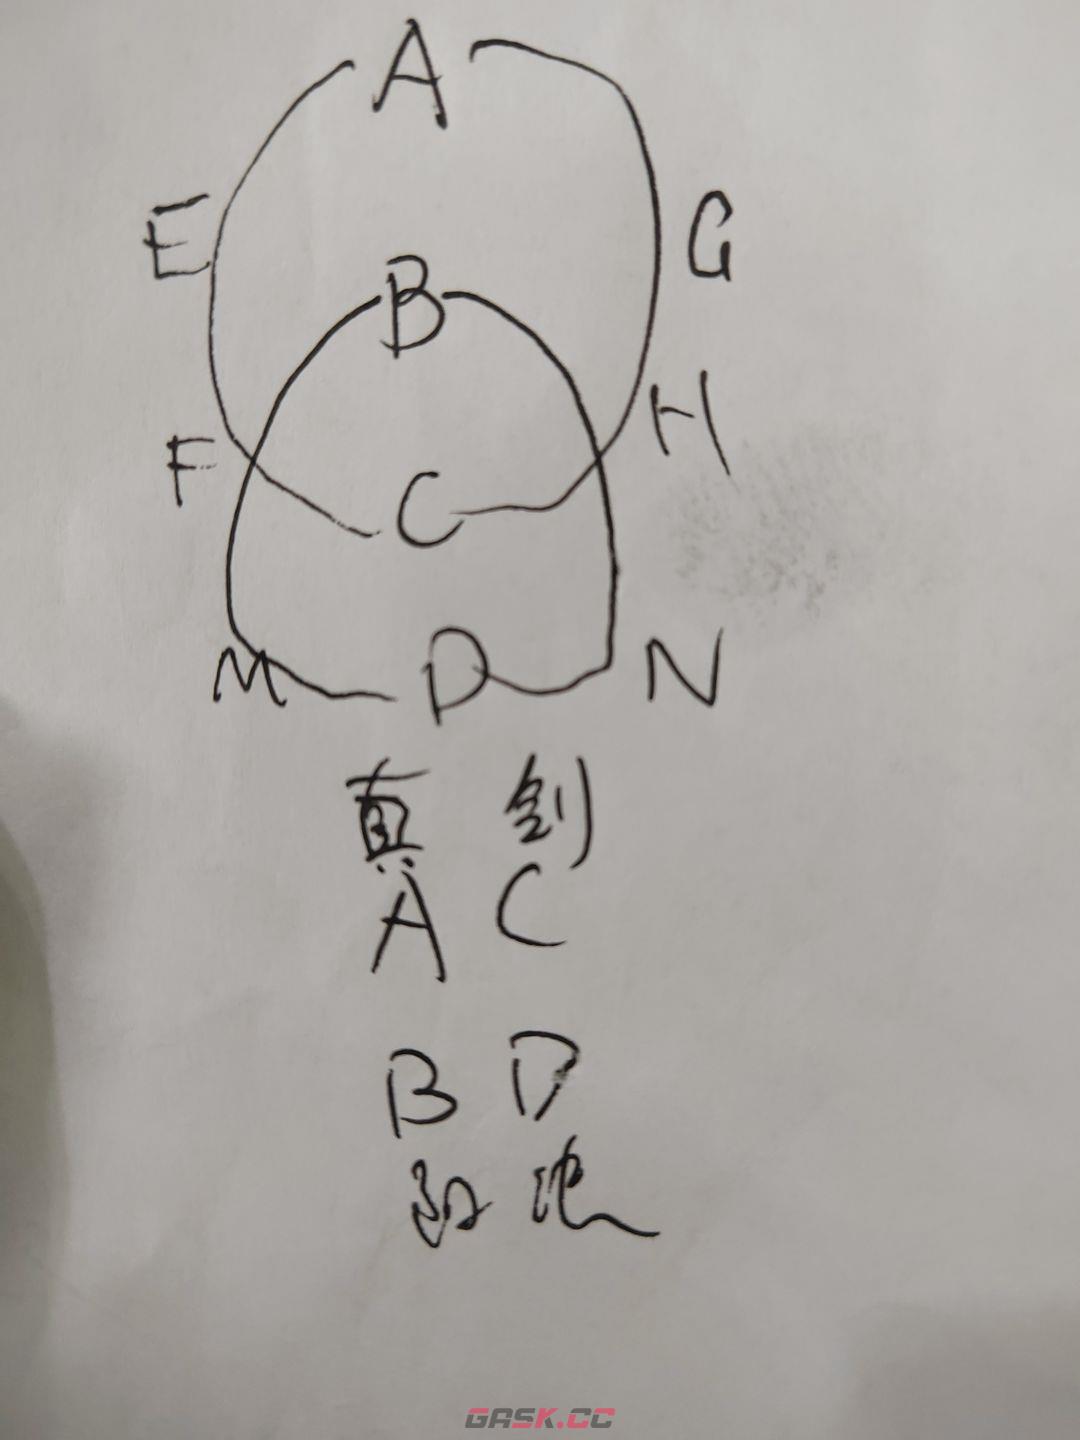 A
E G
B
F H
C
M D N
真 剑
A C
B D
GASK.CC